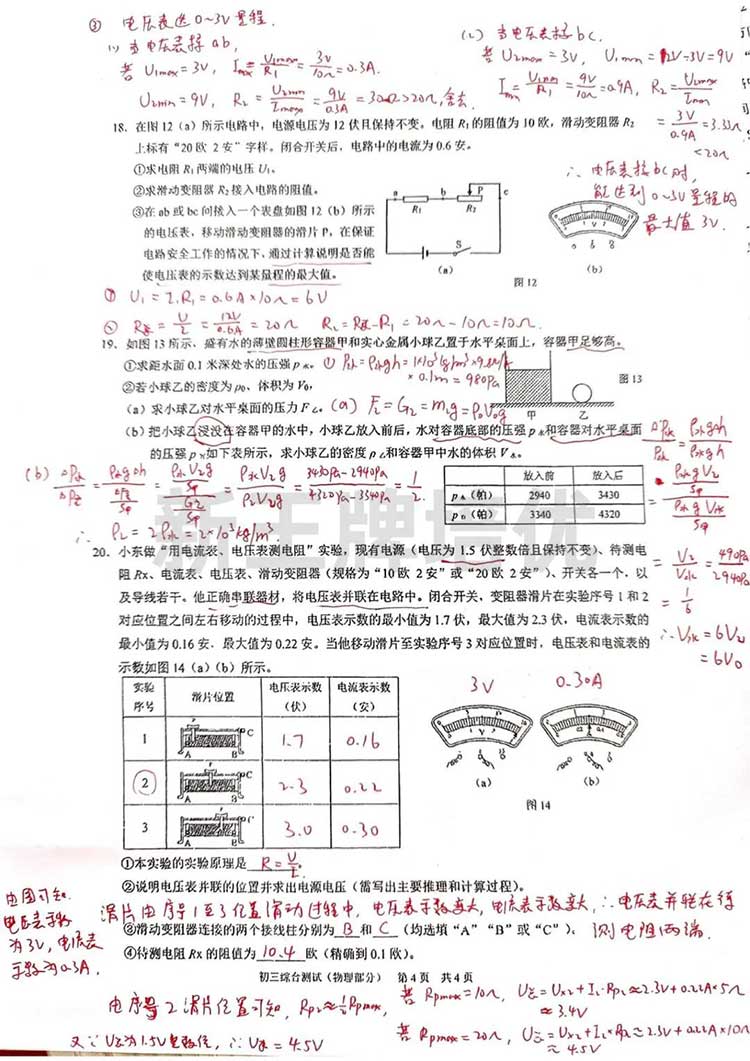 ③ 电压表选0~3V量程.
(1) 当电压表接ab,
若U1max=3V, Imax=U1max/R1=3V/10Ω=0.3A.
U2min=9V, R2=U2min/Imax=9V/0.3A=30Ω>20Ω,舍去
(2) 当电压表接bc.
若U2max=3V, U1min=12V-3V=9V
Imin=U1min/R1=9V/10Ω=0.9A, R2=U2max/Imin
=3V/0.9A=3.33Ω
<20Ω
∴ 电压表接bc时,
能达到0~3V量程的
最大值3V.
18. 在图12(a)所示电路中,电源电压为12伏且保持不变。电阻R₁的阻值为10欧,滑动变阻器R₂
上标有“20欧 2安”字样。闭合开关后,电路中的电流为0.6安。
①求电阻R₁两端的电压U₁。
②求滑动变阻器R₂接入电路的阻值。
③在ab或bc间接入一个表盘如图12(b)所示
的电压表,移动滑动变阻器的滑片P,在保证
电路安全工作的情况下、通过计算说明是否能
使电压表的示数达到某量程的最大值。
a b P c
R₁ R₂
S
(a)
0 6 8
(b)
图12
① U1=I·R1=0.6A×10Ω=6V
② R总=U/I=12V/0.6A=20Ω R2=R总-R1=20Ω-10Ω=10Ω.
19. 如图13所示,盛有水的薄壁圆柱形容器甲和实心金属小球乙置于水平桌面上,容器甲足够高。
①求距水面0.1米深处水的压强p水。
① P水=ρ水gh=1×10³kg/m³×9.8N/kg
×0.1m=980Pa
②若小球乙的密度为ρ₀、体积为V₀,
(a)求小球乙对水平桌面的压力F乙。
(a) F乙=G乙=m乙g=ρ0V0g
甲 乙
图13
(b)把小球乙浸没在容器甲的水中,小球乙放入前后,水对容器底部的压强p水和容器对水平桌面
的压强p容如下表所示,求小球乙的密度ρ乙和容器甲中水的体积V水。
放入前 放入后
p水(帕) 2940 3430
p容(帕) 3340 4320
(b) ΔP水/ΔP容=ρ水gΔh/(ΔF容/S甲)=(ρ水V乙g/S甲)/(G乙/S甲)=ρ水V乙g/ρ乙V乙g=(3430Pa-2940Pa)/(4320Pa-3340Pa)=1/2.
∴ ρ乙=2ρ水=2×10³kg/m³.
ΔP水/P水=ρ水gΔh/ρ水gh
=(ρ水gV乙/S甲)/(ρ水gV水/S甲)
=V乙/V水=490Pa/2940Pa
=1/6
∴V水=6V乙
=6V0
新王牌培优
20. 小东做“用电流表、电压表测电阻”实验,现有电源(电压为1.5伏整数倍且保持不变)、待测电
阻Rx、电流表、电压表、滑动变阻器(规格为“10欧 2安”或“20欧 2安”)、开关各一个,以
及导线若干。他正确串联器材,将电压表并联在电路中。闭合开关、变阻器滑片在实验序号1和2
对应位置之间左右移动的过程中,电压表示数的最小值为1.7伏,最大值为2.3伏,电流表示数的
最小值为0.16安、最大值为0.22安。当他移动滑片至实验序号3对应位置时,电压表和电流表的
示数如图14(a)(b)所示。
实验序号 滑片位置 电压表示数(伏) 电流表示数(安)
1 P C A B 1.7 0.16
2 P C A B 2.3 0.22
3 P C A B 3.0 0.30
3V 0.30A
V A
(a) (b)
图14
①本实验的实验原理是 R=U/I
②说明电压表并联的位置并求出电源电压(需写出主要推理和计算过程)。
由图可知
电压表示数
为3V,电流表
示数为0.3A.
滑片由序号1至3位置滑动过程中,电压表示数变大,电流表示数变大,∴电压表并联在待
测电阻两端.
③滑动变阻器连接的两个接线柱分别为 B 和 C (均选填“A”“B”或“C”)。
④待测电阻Rx的阻值为 10.4 欧(精确到0.1欧)。
初三综合测试(物理部分) 第4页 共4页
由序号2滑片位置可知, Rp2≈½Rpmax,
若Rpmax=10Ω, U总=Ux2+I2·Rp2≈2.3V+0.22A×5Ω
≈3.4V
若Rpmax=20Ω, U总=Ux2+I2×Rp2≈2.3V+0.22A×10Ω
≈4.5V
又∵U总为1.5V整数倍,∴U总=4.5V